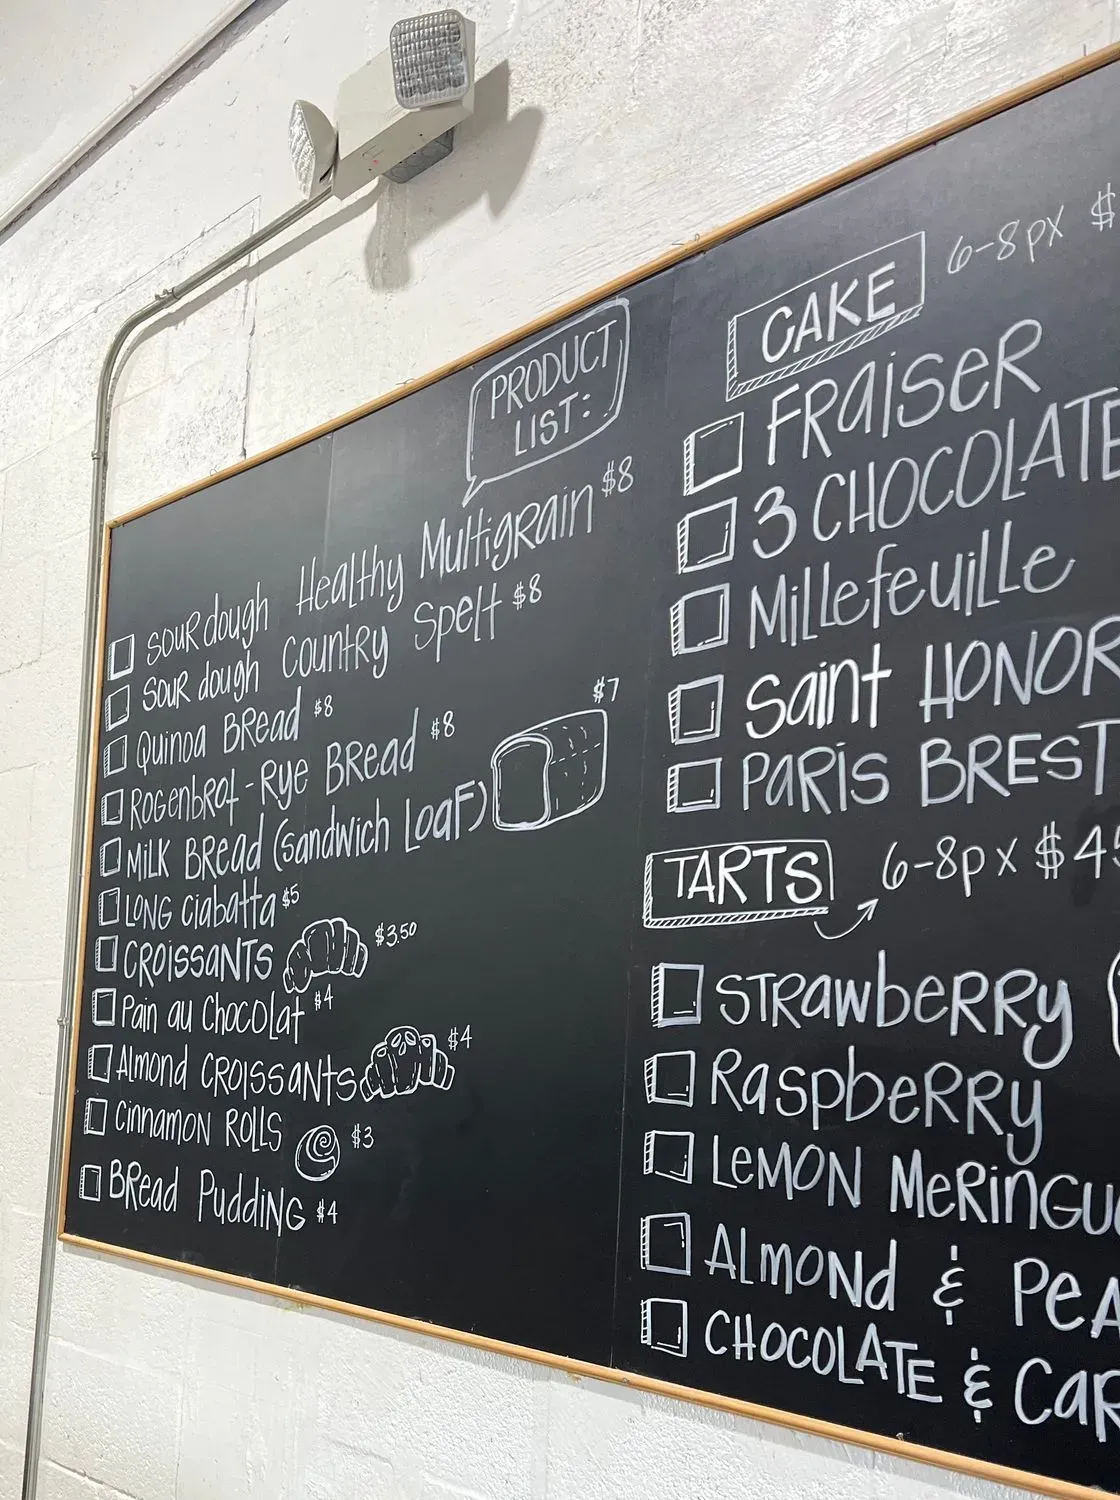 PRODUCT
LIST:
Sourdough Healthy Multigrain $8
Sour dough Country Spelt $8
Quinoa Bread $8
Rogenbrot-Rye Bread $8
Milk Bread (Sandwich Loaf) $7
Long Ciabatta $5
Croissants $3.50
Pain au Chocolat $4
Almond Croissants $4
Cinnamon Rolls $3
Bread Pudding $4
CAKE 6-8px $
Fraiser
3 CHOCOLATE
Millefeuille
Saint HONOR
Paris BREST
TARTS 6-8px $45
Strawberry
Raspberry
Lemon Meringu
Almond & Pea
CHOCOLATE & Car